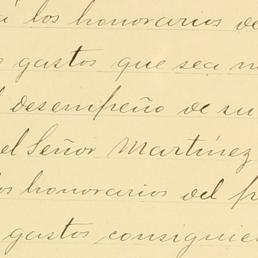 á los honorarios de
gastos que sea
desempeño de su
el Señor Martínez
los honorarios del
gastos